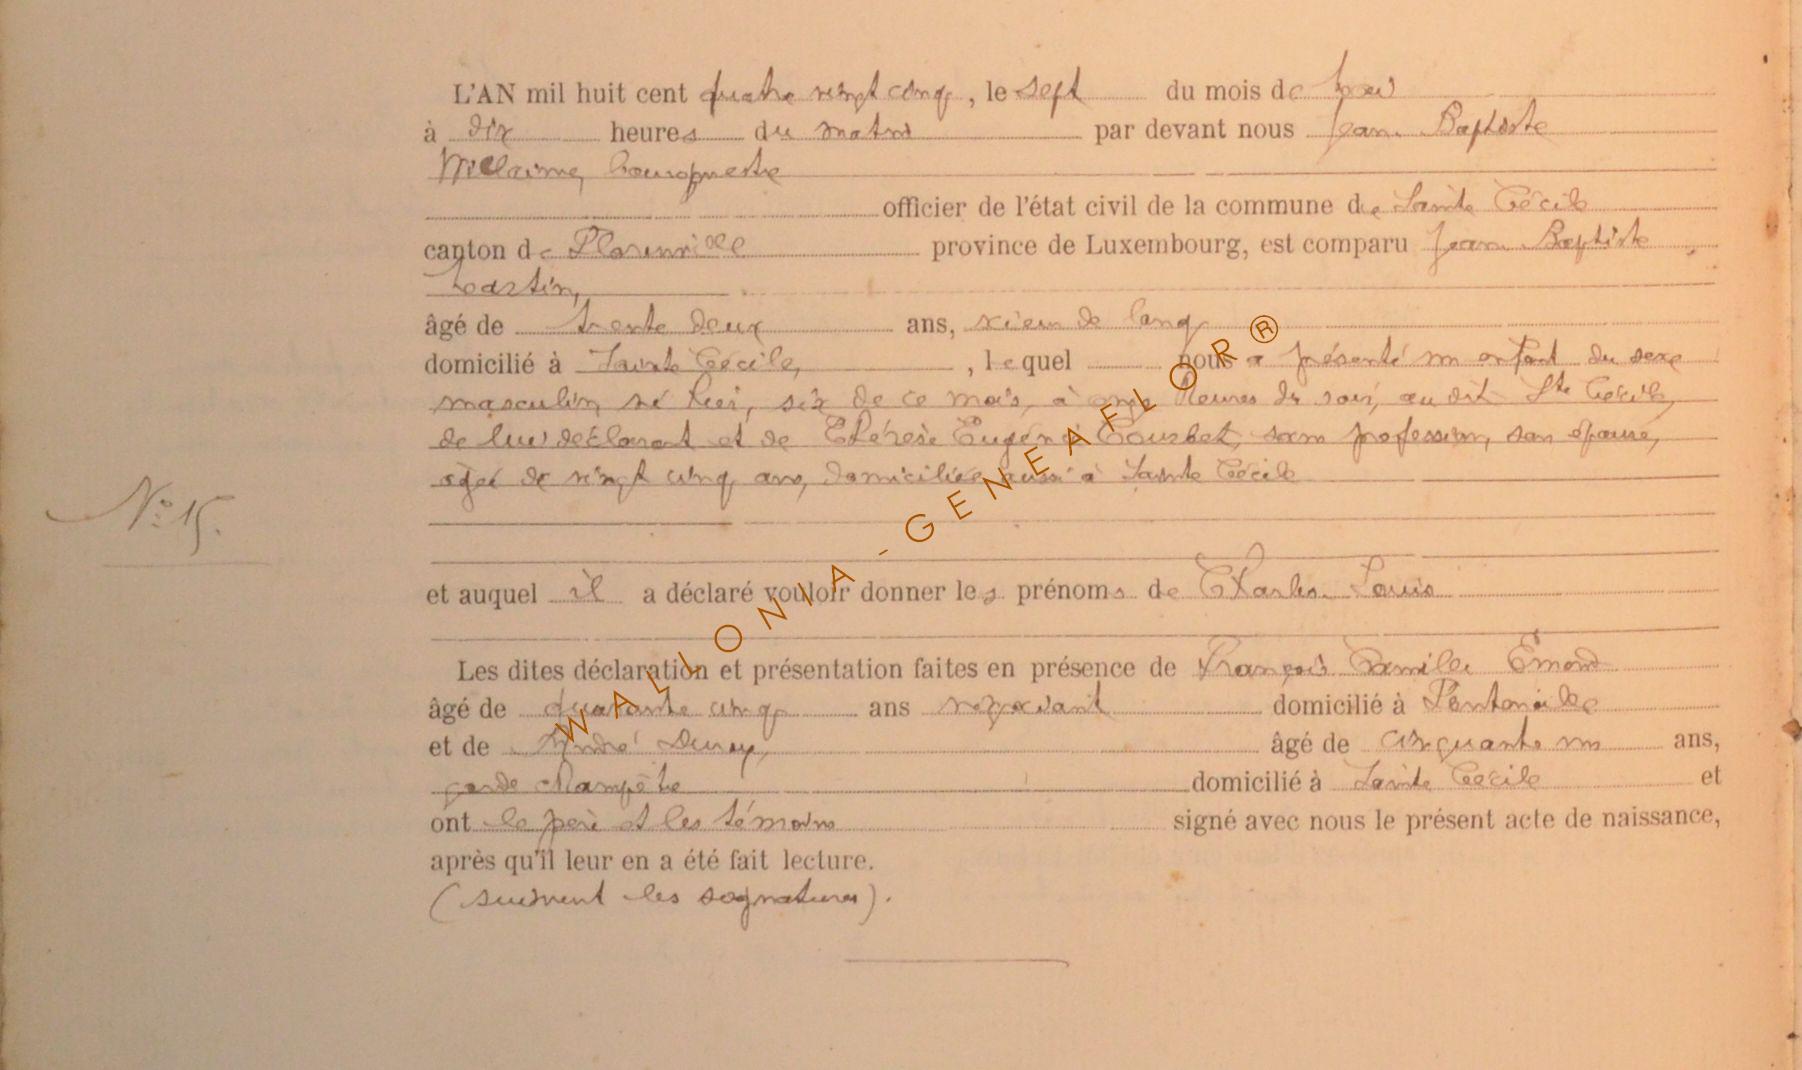 L'AN mil huit cent quatre vingt cinq, le sept du mois de Mai
à dix heures du matin par devant nous Jean Baptiste
Willaime, bourgmestre
officier de l'état civil de la commune de Sainte Cécile
canton de Florenville province de Luxembourg, est comparu Jean Baptiste
Martin,
âgé de trente deux ans, scieur de long
domicilié à Sainte Cécile, , lequel nous a présenté un enfant du sexe
masculin, né hier, six de ce mois, à onze heures du soir, au dit Ste Cécile,
de lui déclarant et de Thérèse Eugénie Bourbet, sans profession, son épouse,
agée de vingt cinq ans, domiciliée aussi à Sainte Cécile
No 15.
et auquel il a déclaré vouloir donner les prénoms de Charles Louis
Les dites déclaration et présentation faites en présence de François Camille Emond
âgé de quarante cinq ans négociant domicilié à Pontoville
et de André Duruy, âgé de cinquante un ans,
garde champêtre domicilié à Sainte Cécile et
ont le père et les témoins signé avec nous le présent acte de naissance,
après qu'il leur en a été fait lecture.
(suivent les signatures).
WALLONIA-GENEAFLOR®